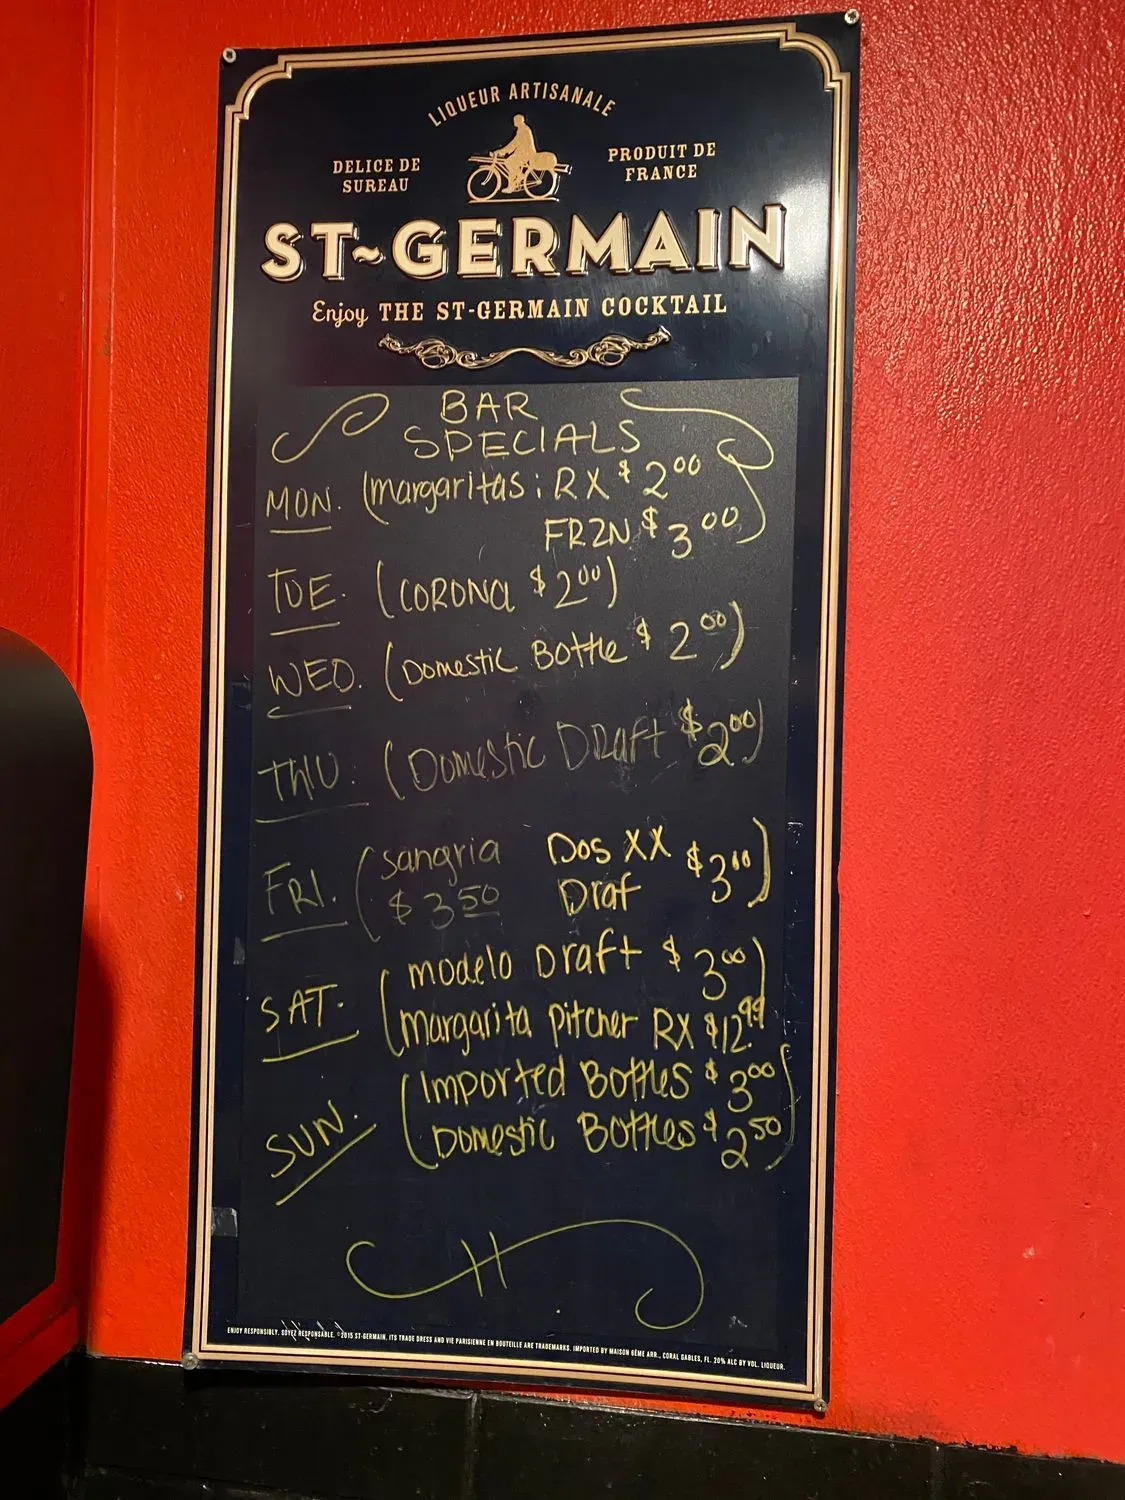 LIQUEUR ARTISANALE
DELICE DE SUREAU
PRODUIT DE FRANCE
ST~GERMAIN
Enjoy THE ST-GERMAIN COCKTAIL
BAR
SPECIALS
MON. (margaritas: RX $2.00
FRZN $3.00)
TUE. (CORONA $2.00)
WED. (Domestic Bottle $2.00)
THU. (Domestic Draft $2.00)
FRI. (sangria Dos XX $3.00)
$3.50 Draf
SAT. (modelo Draft $3.00)
margarita pitcher RX $12.99
SUN. (Imported Bottles $3.00)
Domestic Bottles $2.50
ENJOY RESPONSIBLY. SOYEZ RESPONSABLE. ©2015 ST-GERMAIN, ITS TRADE DRESS AND VIE PARISIENNE EN BOUTEILLE ARE TRADEMARKS. IMPORTED BY MAISON 6ÈME ARR., CORAL GABLES, FL. 20% ALC BY VOL. LIQUEUR.